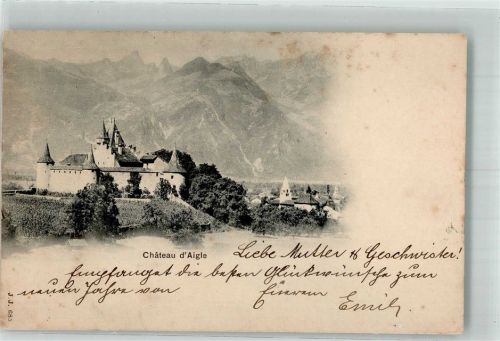 Château d'Aigle
Liebe Mutter & Geschwister!
Empfanget die besten Glückwünsche zum
neuen Jahre von Euerem Emil
J. J. 685